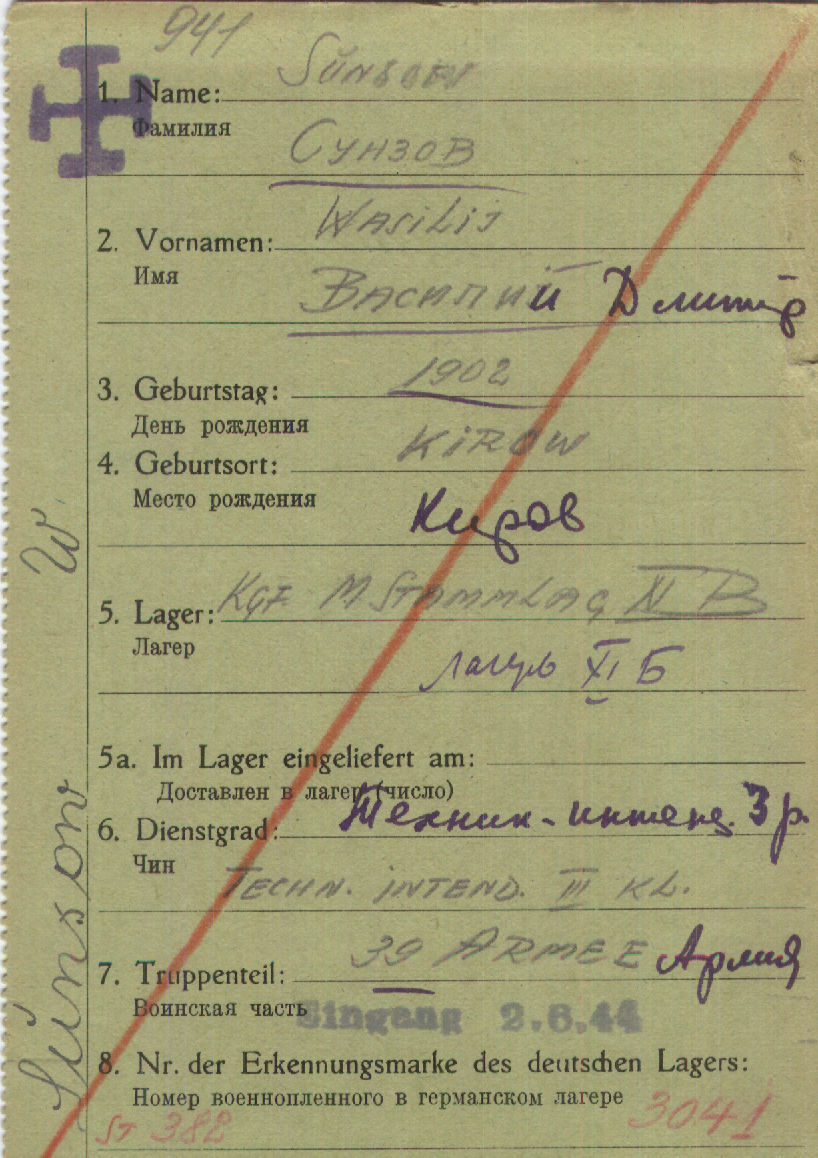 941
1. Name: Sünsow
Фамилия
Сунзов
2. Vornamen: Wasilij
Имя
Василий Дмитр
3. Geburtstag: 1902
День рождения
4. Geburtsort: Kirow
Место рождения
Киров
5. Lager: KGF M Stammlag XI B
Лагер
лагерь XI Б
5a. Im Lager eingeliefert am:
Доставлен в лагер (число)
6. Dienstgrad: Техник-интенд. 3 р.
Чин
TECHN. INTEND. III KL.
7. Truppenteil: 39 ARMEE Армия
Воинская часть
Eingang 2.6.44
8. Nr. der Erkennungsmarke des deutschen Lagers:
Номер военнопленного в германском лагере 3041
ST 382
Sünsow W.